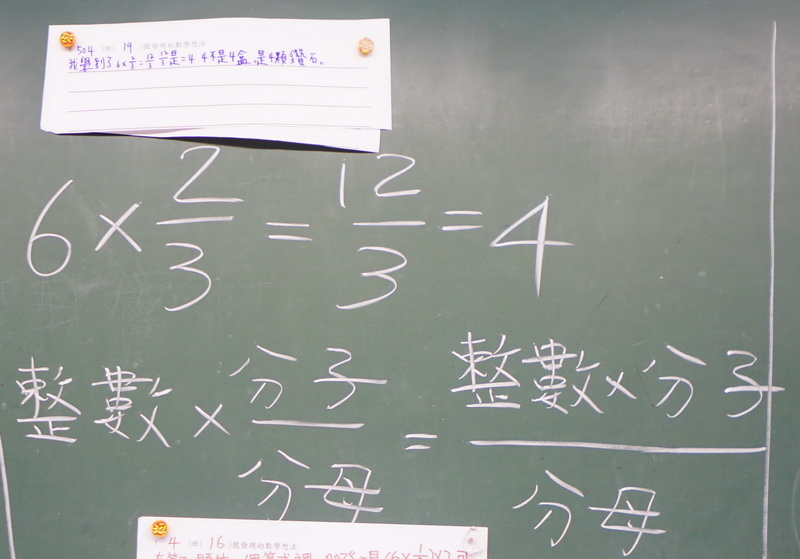 504（班）19（號發現的數學想法
我學到了6×2/3=12/3 12/3是=4 4不是4盒,是4顆鑽石。
6×2/3=12/3=4
整數×分子/分母=整數×分子/分母
4（班）16（號發現的數學想法